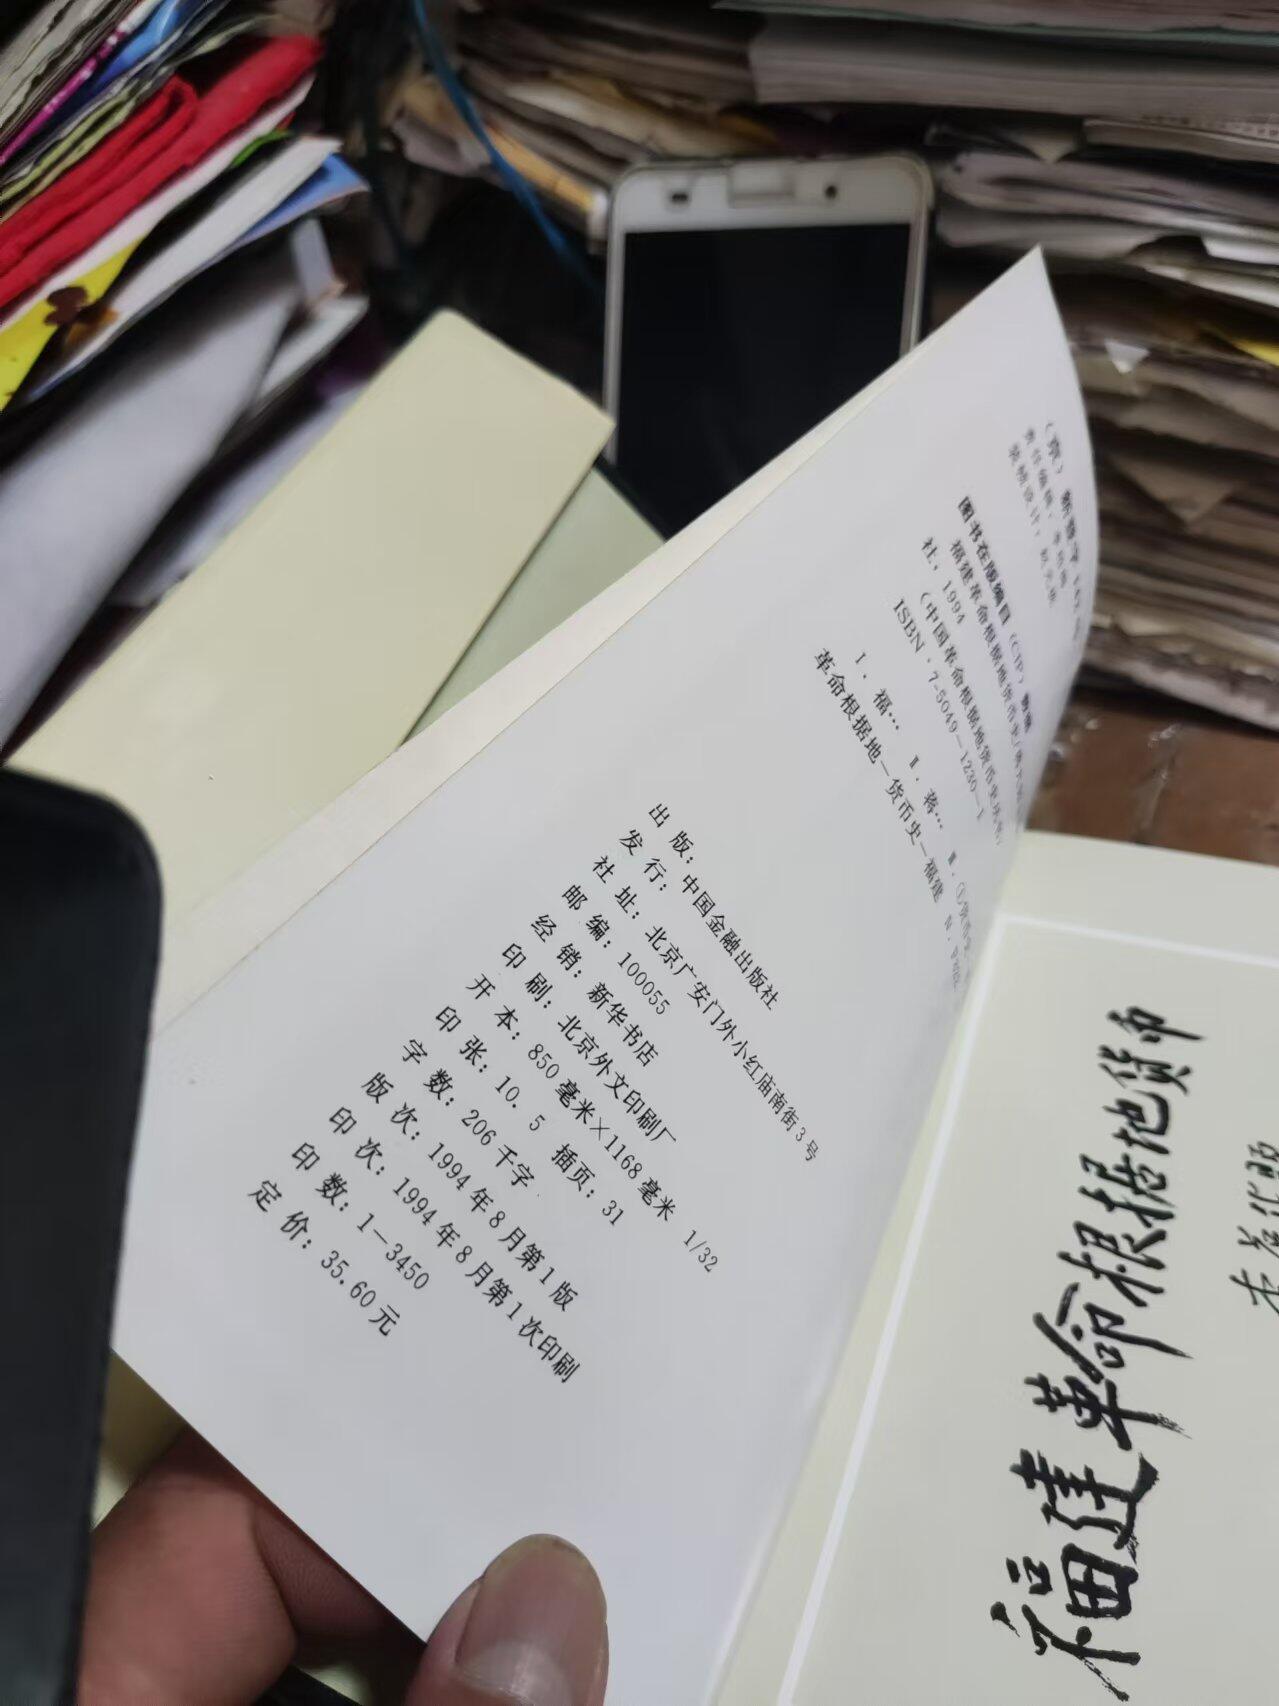 图书在版编目（CIP）数据
福建革命根据地货币史
社，1994
（中国革命根据地货币史丛书）
ISBN 7-5049-1230-1
Ⅰ．福… Ⅱ．蒋… Ⅲ．①货币史
革命根据地－货币史－福建
出版：中国金融出版社
发行：
社址：北京广安门外小红庙南街3号
邮编：100055
经销：新华书店
印刷：北京外文印刷厂
开本：850毫米×1168毫米 1/32
印张：10.5 插页：31
字数：206千字
版次：1994年8月第1版
印次：1994年8月第1次印刷
印数：1—3450
定价：35.60元
福建革命根据地货币